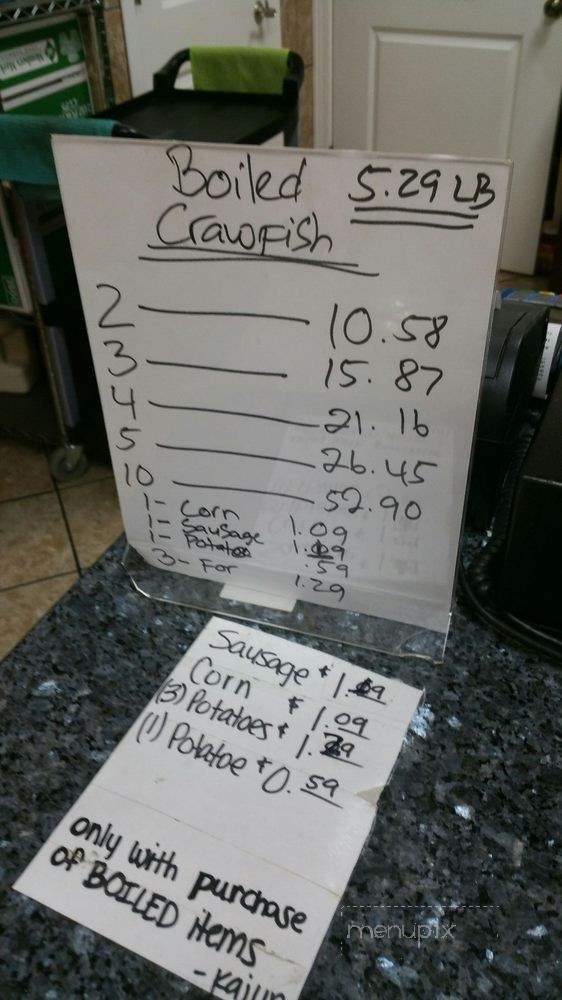 Boiled 5.29 LB
Crawfish
2 — 10.58
3 — 15.87
4 — 21.16
5 — 26.45
10 — 52.90
1- Corn 1.09
1- Sausage 1.09
1- Potatoe .59
3- For 1.29
Sausage $ 1.09
Corn $ 1.09
(3) Potatoes $ 1.29
(1) Potatoe $ 0.59
only with purchase
of BOILED items
-Kajun
menupix